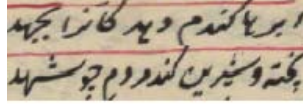 ابرها گندم دهد کانرا بجهد
پخته و شیرین کند مردم چو شهد